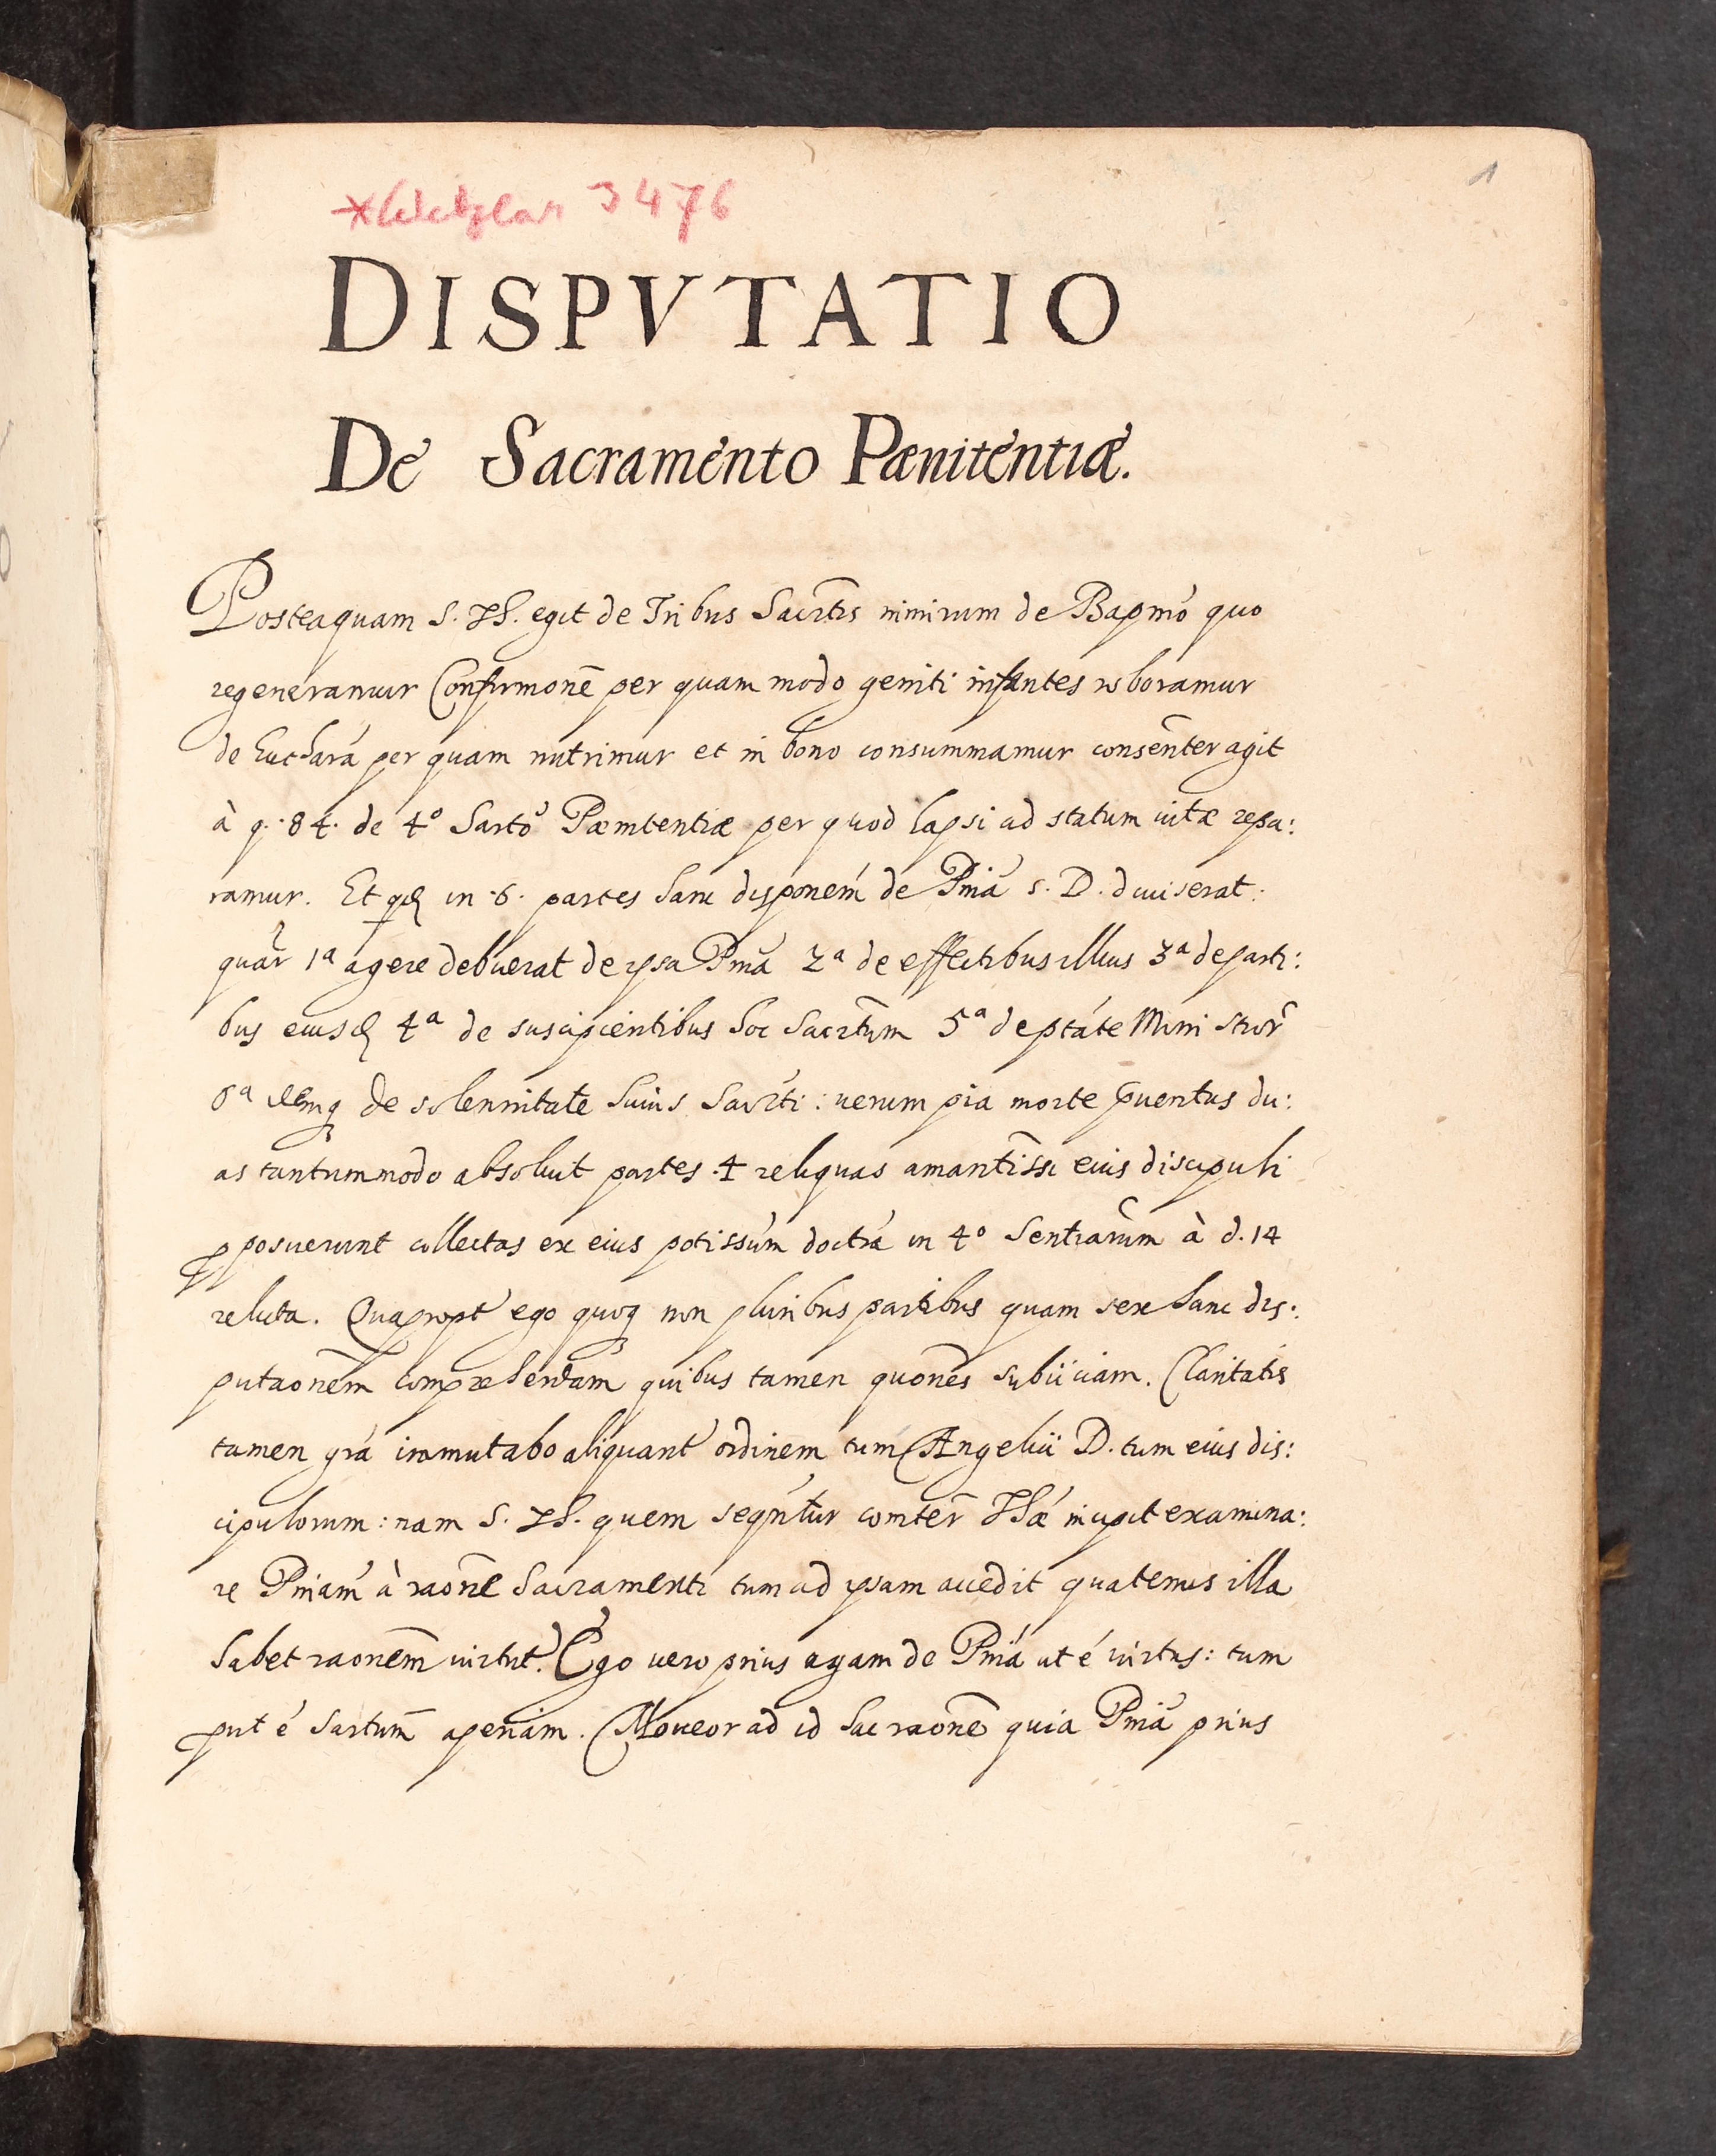 1
* Wetzlar 3476
DISPVTATIO
De Sacramento Pænitentiæ.
Posteaquam S. Th. egit de Tribus Sacrtis nimirum de Bapmo quo
regeneramur Confirmone per quam modo geniti infantes roboramur
de Euchara per quam nutrimur et in bono consummamur consenter agit
à q. 84. de 4º Sacrto Pænitentiæ per quod lapsi ad statum vitæ repa:
ramur. Et in 6. partes hanc disponem de Pnia S. D. diuiserat:
quar 1ª agere debuerat de ipsa Pnia 2ª de effectibus illius 3ª de parti:
bus eiusd 4ª de suscipientibus hoc Sacrtum 5ª de ptate Ministror
6ª deniq de solennitate huius Sacrti: uerum pia morte puentus du:
as tantummodo absoluit partes 4 reliquas amantissi eius discipuli
pposuerunt collectas ex eius potissum doctra in 4º Sentiarum à d. 14
relicta. Quapropt ego quoq non pluribus partibus quam sex hanc dis:
putaonem comprehendam quibus tamen quones subiiciam. Claritatis
tamen gra immutabo aliquant ordinem tum Angelii D. tum eius dis:
cipulorum: nam S. Th. quem sequntur comter Thæ incipit examina:
re Pniam à raone Sacramenti tum ad ipsam accedit quatenus illa
habet raonem virtut. Ego uero prius agam de Pnia ut é virtus: tum
put é Sactum aperiam. Moueor ad id hac raone quia Pnia prius